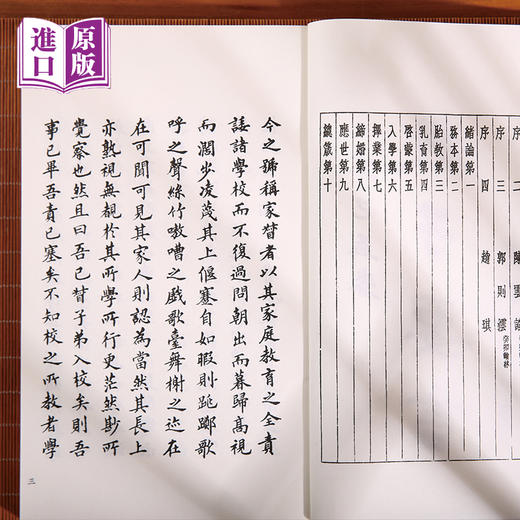 原版
進口
序二 陳雲誥
序三 郭則澐
序四 趙琪
緒論第一
務本第二
胎教第三
乳育第四
啓蒙第五
入學第六
擇業第七
締婚第八
應世第九
箴第十
今之號稱家督者以其家庭教育之全責
諉諸學校而不復過問朝出而暮歸高視
而濶步凌蔑其上偃蹇自如暇則跳躑歌
呼之聲絲竹嗷嘈之戲歌臺舞榭之迹在
在可聞可見其家人則認為當然其長上
亦熟視無覩於其所學所行更茫然尠所
覺察也然且曰吾已督子弟入校矣則吾
事已畢吾責已塞矣不知校之所教者學
三